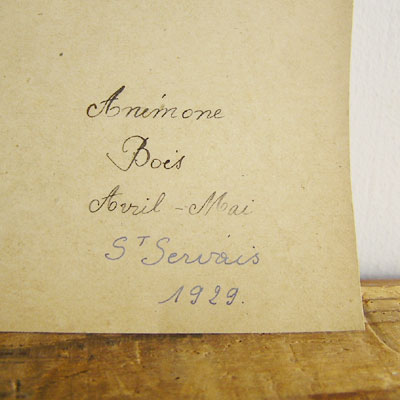 Anémone
Bois
Avril - Mai
St Servais
1929.